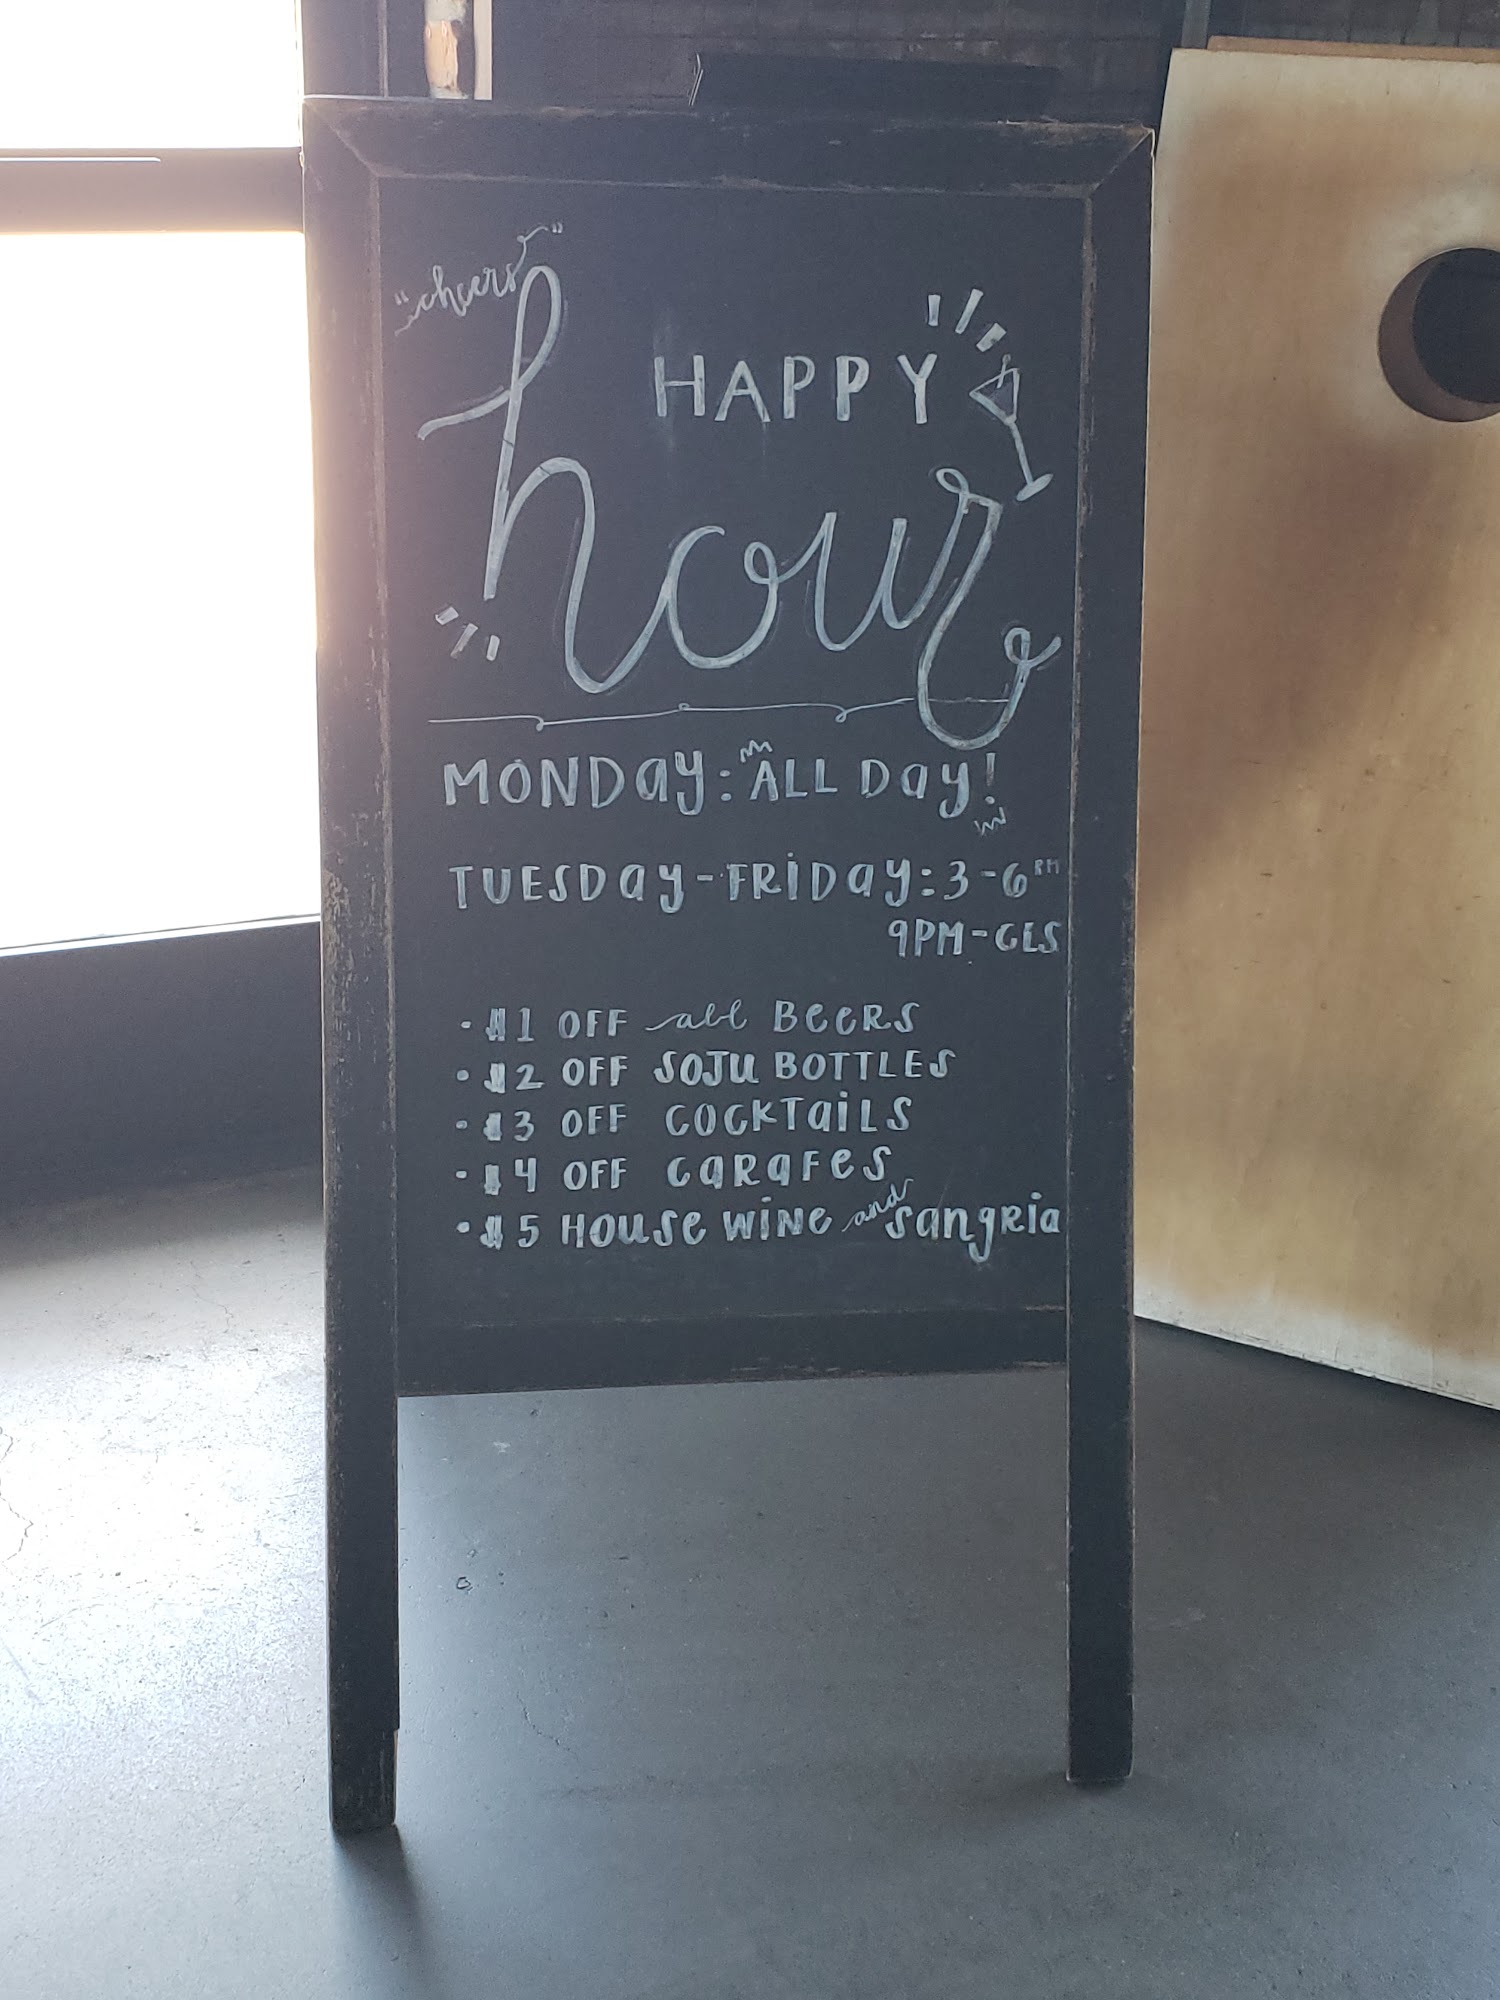 "cheers"
HAPPY
hour
MONDAY: ALL DAY!
TUESDAY-FRIDAY: 3-6PM
9PM-CLS
• $1 OFF all BEERS
• $2 OFF SOJU BOTTLES
• $3 OFF COCKTAILS
• $4 OFF CARAFES
• $5 HOUSE WINE and SANGRIA